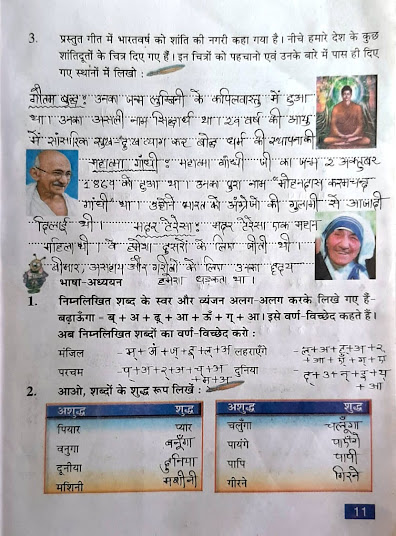 3. प्रस्तुत गीत में भारतवर्ष को शांति की नगरी कहा गया है। नीचे हमारे देश के कुछ
शांतिदूतों के चित्र दिए गए हैं। इन चित्रों को पहचानो एवं उनके बारे में पास ही दिए
गए स्थानों में लिखो :
गौतम बुद्ध : उनका जन्म लुम्बिनी के कपिलवास्तु में हुआ
था। उनका असली नाम सिद्धार्थ था। २९ वर्ष की आयु
में सांसारिक सुख दुःख त्याग कर बौद्ध धर्म की स्थापना की
महात्मा गाँधी : महात्मा गाँधी जी का जन्म २ अक्टूबर
1869 को हुआ था। उनका पुरा नाम "मोहनदास करमचन्द्र
गांधी" था। उन्होंने भारत को अंग्रेजो की गुलामी से आजादी
दिलाई थी। मदर टेरेसा: मदर टेरेसा एक महान
महिला थी। वे हमेशा दुसरों के लिए जीती थी।
बीमार, असहाय और गरीबों के लिए उनका हृदय
हमेशा धड़कता था।
भाषा-अध्ययन
1. निम्नलिखित शब्द के स्वर और व्यंजन अलग-अलग करके लिखे गए हैं-
बढ़ाऊँगा - ब् + अ + ढ़् + आ + ऊँ + ग् + आ। इसे वर्ण-विच्छेद कहते हैं।
अब निम्नलिखित शब्दों का वर्ण-विच्छेद करो :
मंजिल - म्+अं+ज्+इ+ल्+अ लहराएँगे - ल्+अ+ह्+अ+र्
परचम - प्+अ+र्+अ+च्+अ+म्+अ दुनिया - द्+उ+न्+इ+य्+आ
2. आओ, शब्दों के शुद्ध रूप लिखें :
अशुद्ध शुद्ध अशुद्ध शुद्ध
पियार प्यार चलुँगा चलूँगा
वनुगा बनूँगा पायंगे पाएँगे
दूनीया दुनिया पापि पापी
मशिनी मशीनी गीरने गिरने
11